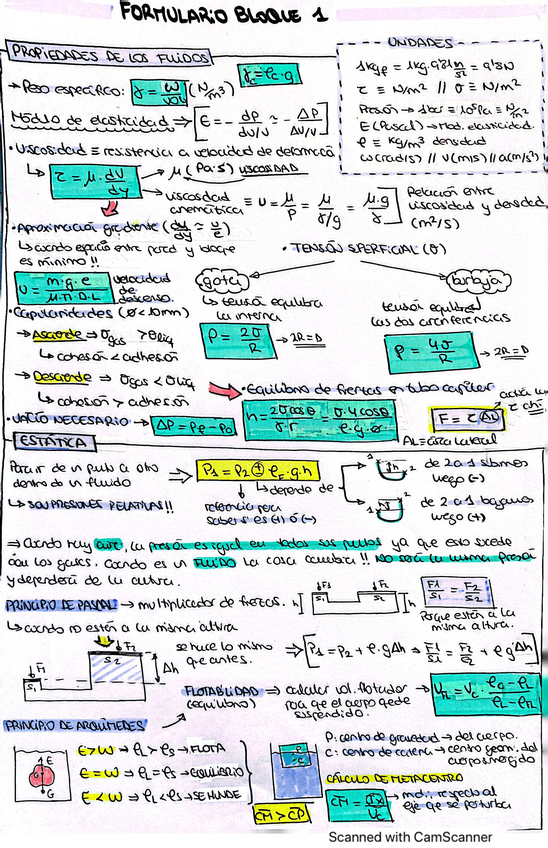 FORMULARIO BLOQUE 1
PROPIEDADES DE LOS FLUIDOS
→ Peso específico: γ = W/Vol (N/m³) γ = ρ·g
Módulo de elasticidad ⇒ [E = - dP/(dV/V) ≃ - ΔP/(ΔV/V)]
UNIDADES
1kgf = 1kg·9'81 m/s² = 9'81N
τ ≡ N/m² // σ ≡ N/m²
Presión → 1bar ≡ 10⁵Pa ≡ N/m²
E (Pascal) → Mod. elasticidad.
ρ ≡ kg/m³ densidad
ω(rad/s) // v(m/s) // a(m/s²)
• Viscosidad ≡ resistencia a velocidad de deformació
↳ τ = μ · dV/dy → μ (Pa·s) VISCOSIDAD
→ viscosidad cinemática ≡ υ = μ/ρ = μ/(γ/g) = μ·g/γ] Relación entre viscosidad y densidad (m²/s)
• Aproximación gradiente (dv/dy ≃ v/e)
↳ cuando espacio entre pared y bloque
es mínimo !!
υ = m·g·e/(μ·π·D·L) velocidad de descenso.
• TENSIÓN SUPERFICIAL (σ)
gota
↳ tensión equilibra
la interna
P = 2σ/R → 2R=D
burbuja
tensión equilibra
las dos circunferencias
P = 4σ/R → 2R=D
• Capilaridades (Ø<10mm)
→ Asciende ⇒ σgas > σliq
↳ cohesión < adhesión
→ Desciende ⇒ σgas < σliq
↳ cohesión > adhesión
• Equilibrio de fuerzas en tubo capilar
h = 2σcosθ/(γ·r) = σ·4cosθ/(ρ·g·ø)
F = τ · AL
AL = área lateral
• VACÍO NECESARIO → ΔP = Pe - Po
ESTÁTICA
Para ir de un punto a otro
dentro de un fluido
↳ SON PRESIONES RELATIVAS!!
⇒ P1 = P2 ± ρF·g·h
↳ depende de
referencia para
saber si es (+) ó (-)
de 2 a 1 subimos
luego (-)
de 2 a 1 bajamos
luego (+)
⇒ Cuando hay aire, la presión es igual en todos sus puntos ya que esto sucede
con los gases. Cuando es un FLUIDO la cosa cambia!! No será la misma presión
y dependerá de la altura.
PRINCIPIO DE PASCAL → multiplicador de fuerzas.
h F1 S1 F2 S2 h
F1/S1 = F2/S2
Porque están a la
misma altura.
↳ cuando no están a la misma altura
F1 S1 F2 S2 Δh
se hace lo mismo
que antes.
⇒ [P1 = P2 + ρ·gΔh → F1/S1 = F2/S2 + ρgΔh]
FLOTABILIDAD (equilibrio) ⇒ calcular vol. flotador
para que el cuerpo quede
suspendido.
PRINCIPIO DE ARQUÍMEDES
E
G
E > W → ρL > ρS → FLOTA
E = W → ρL = ρS → EQUILIBRIO
E < W → ρL < ρS → SE HUNDE
P: centro de gravedad → del cuerpo.
C: centro de carena → centro geom. del
cuerpo sumergido
CÁLCULO DE METACENTRO
CM > CP
→ respecto al
eje que se perturba
Scanned with CamScanner